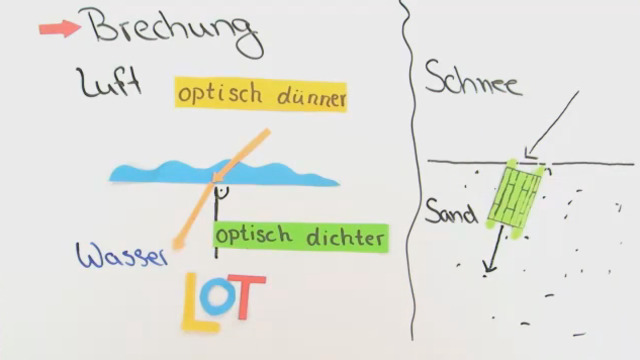 Brechung
Luft
optisch dünner
optisch dichter
Wasser
LOT
Schnee
Sand